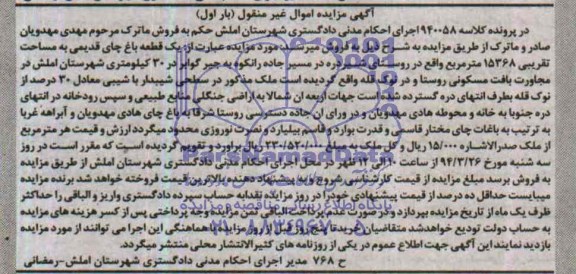 آگهی مزایده اموال غیر منقول (بار اول)
در پرونده کلاسه ۹۴۰۰۵۸ اجرای احکام مدنی دادگستری شهرستان املش حکم به فروش ماترک مرحوم مهدی مهدویان
صادر و ماترک از طریق مزایده به شرح ذیل به فروش میرسد. مورد مزایده عبارت از یک قطعه باغ چای قدیمی به مساحت
تقریبی ۱۵۳۶۸ مترمربع واقع در روستای دره در مسیر جاده رانکوه به جیر گوابر در ۳۰ کیلومتری شهرستان املش در
مجاورت بافت مسکونی روستا و در نوک قله واقع گردیده است ملک مذکور در سطحی شیبدار با شیبی معادل ۳۰ درصد از
نوک قله بطرف انتهای دره گسترده شده است جهات اربعه ان شمالا به اراضی جنگلی منابع طبیعی و سپس رودخانه در انتهای
دره جنوبا به خانه و محوطه هادی مهدویان و در ورای ان جاده دسترسی روستا شرقا به باغ چای هادی مهدویان و آبراهه غربا
به ترتیب به باغات چای مختار قاسمی و قدرت بوارد و قاسم بیلیارد و نصرت نوروزی محدود میگردد ارزش و قیمت هر مترمربع
از ملک صدرالاشاره ۱۵/۰۰۰ ریال و کل ملک به مبلغ ۲۳۰/۵۲۰/۰۰۰ ریال براورد و تقویم گردیده است که مقرر است در روز
سه شنبه مورخ ۹۴/۳/۲۶ از ساعت ۱۰ الی ۱۲ ظهر در محل اجرای احکام مدنی دادگستری شهرستان املش از طریق مزایده
به فروش برسد مبلغ مزایده از قیمت کارشناسی شروع و به پیشنهاد دهنده بالاترین قیمت فروخته خواهد شد برنده مزایده
میبایست حداقل ده درصد از قیمت پیشنهادی خود را در روز مزایده نقدا به حساب سپرده دادگستری واریز و الباقی را حداکثر
ظرف یک ماه از تاریخ مزایده بپردازد و در صورت عدم پرداخت الباقی ثمن مزایده وجه پرداختی پس از کسر هزینه های مزایده
به حساب دولت تودیع خواهد شد متقاضیان خرید تا پنج روز قبل از روز مزایده با هماهنگی این اجرا می توانند از مورد مزایده
بازدید نمایند این آگهی جهت اطلاع عموم در یکی از روزنامه های کثیرالانتشار محلی منتشر میگردد.
ح ۷۶۸ مدیر اجرای احکام مدنی دادگستری شهرستان املش-رمضانی